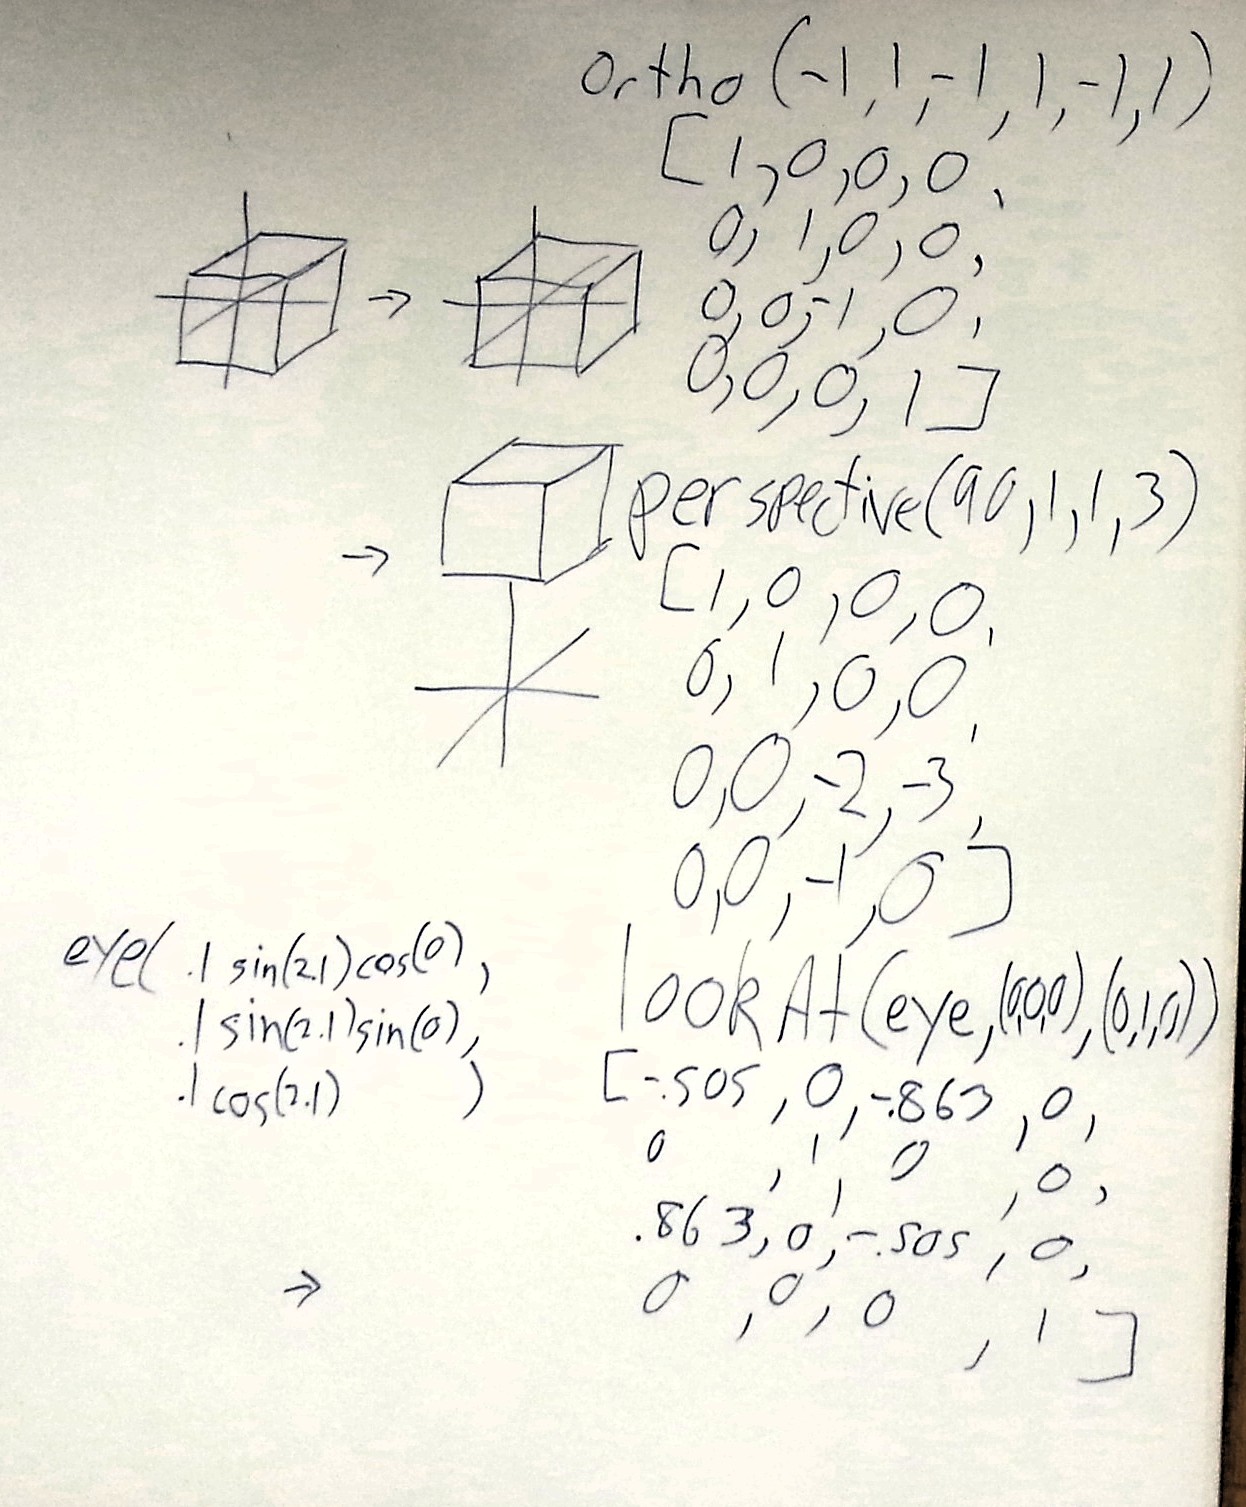 ortho(-1,1,-1,1,-1,1)
[1,0,0,0,
0,1,0,0,
0,0,-1,0,
0,0,0,1]
→
→
perspective(90,1,1,3)
[1,0,0,0,
0,1,0,0,
0,0,-2,-3,
0,0,-1,0]
eye(.1 sin(2.1)cos(0),
.1 sin(2.1)sin(0),
.1 cos(2.1) )
lookAt(eye,(0,0,0),(0,1,0))
[-.505,0,-.863,0,
0,1,0,0,
.863,0,-.505,0,
→
0,0,0,1]